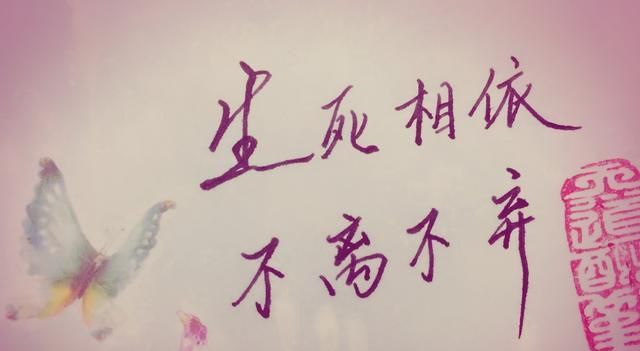 生死相依
不离不弃